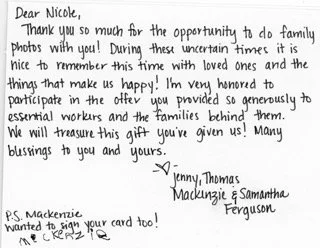 Dear Nicole,
Thank you so much for the opportunity to do family
photos with you! During these uncertain times it is
nice to remember this time with loved ones and the
things that make us happy! I'm very honored to
participate in the offer you provided so generously to
essential workers and the families behind them.
We will treasure this gift you've given us! Many
blessings to you and yours.
-Jenny, Thomas
Mackinzie & Samantha
Ferguson
P.S. Mackenzie
wanted to sign your card too!
MECKENZIE